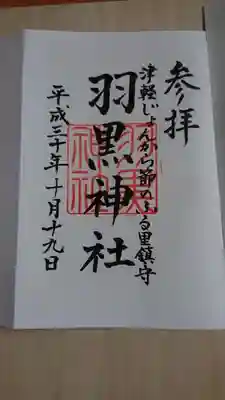 参拝
津軽じょんから節のふる里鎮守
羽黒神社
平成三十年十月十九日